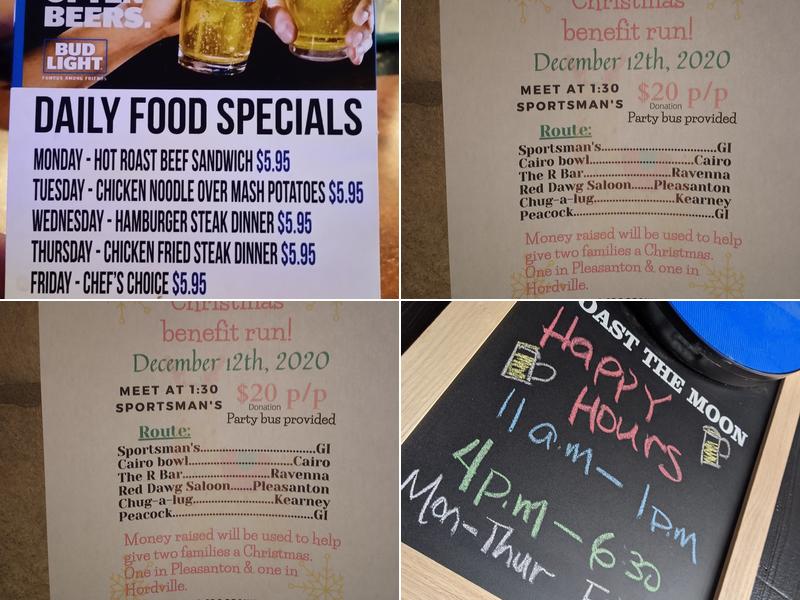 BEERS.
BUD
LIGHT
FAMOUS AMONG FRIENDS
DAILY FOOD SPECIALS
MONDAY - HOT ROAST BEEF SANDWICH $5.95
TUESDAY - CHICKEN NOODLE OVER MASH POTATOES $5.95
WEDNESDAY - HAMBURGER STEAK DINNER $5.95
THURSDAY - CHICKEN FRIED STEAK DINNER $5.95
FRIDAY - CHEF'S CHOICE $5.95
Christmas
benefit run!
December 12th, 2020
MEET AT 1:30
SPORTSMAN'S
$20 p/p
Donation
Party bus provided
Route:
Sportsman's...GI
Cairo bowl...Cairo
The R Bar...Ravenna
Red Dawg Saloon...Pleasanton
Chug-a-lug...Kearney
Peacock...GI
Money raised will be used to help
give two families a Christmas.
One in Pleasanton & one in
Hordville.
Christmas
benefit run!
December 12th, 2020
MEET AT 1:30
SPORTSMAN'S
$20 p/p
Donation
Party bus provided
Route:
Sportsman's...GI
Cairo bowl...Cairo
The R Bar...Ravenna
Red Dawg Saloon...Pleasanton
Chug-a-lug...Kearney
Peacock...GI
Money raised will be used to help
give two families a Christmas.
One in Pleasanton & one in
Hordville.
OAST THE MOON
Happy
Hours
11 a.m - 1 p.m
4 p.m - 6:30
Mon-Thur